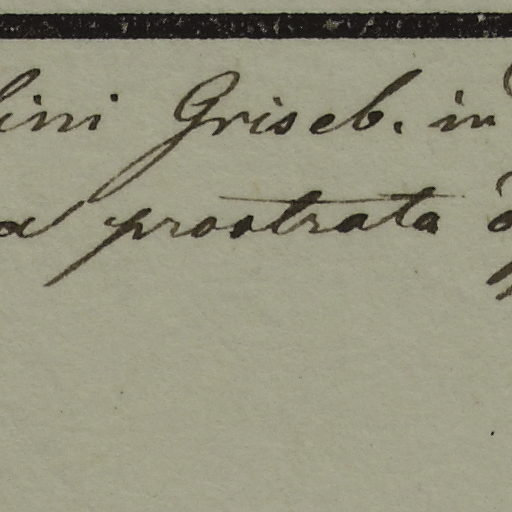 lini Griseb. in
a prostrata